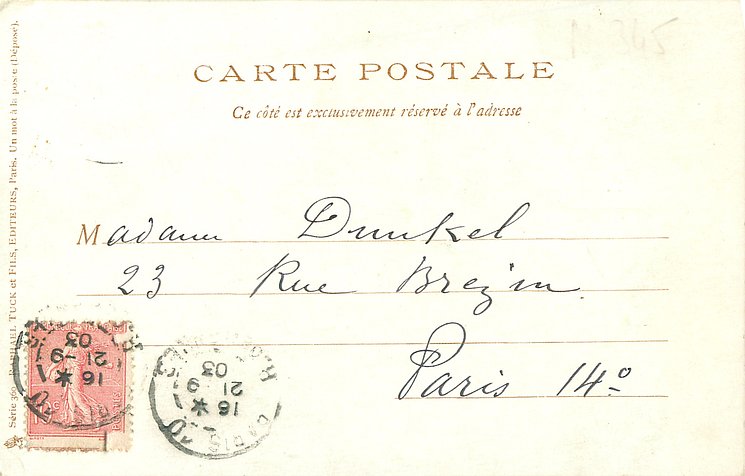 CARTE POSTALE
Ce côté est exclusivement réservé à l'adresse
Madame Dunkel
23 Rue Brezin
Paris 14º
RAPHAEL TUCK et FILS, EDITEURS, Paris. Un mot à la poste (Déposé).
16 *
21 - 9
03
PARIS
16 *
21 9
03
N 345